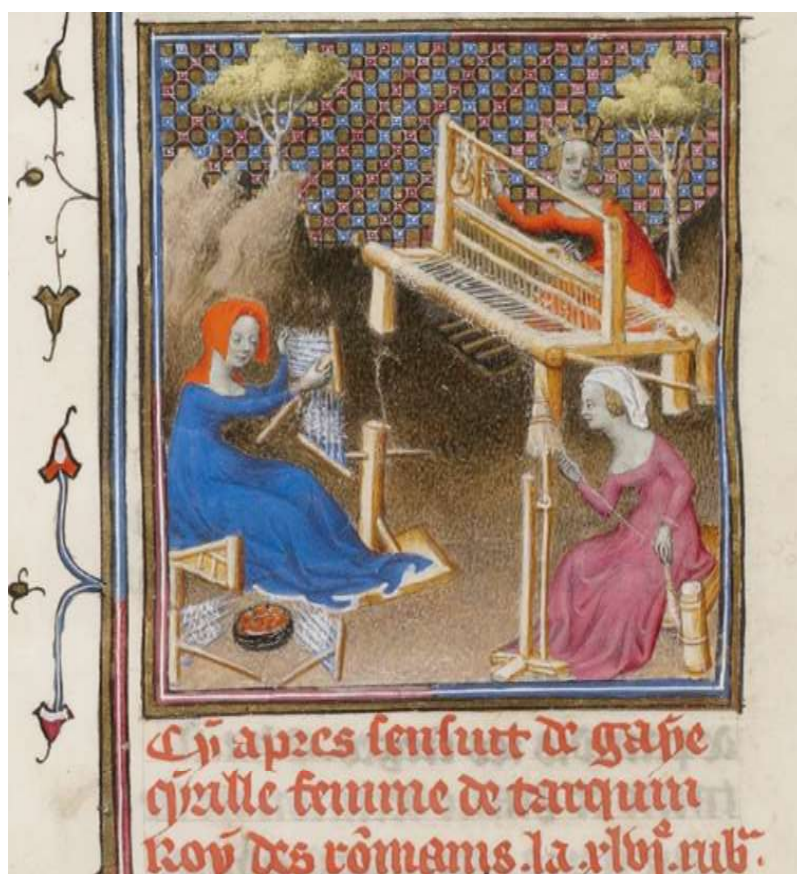 Cy apres sensuit de gaye
cyrille femme de tarquin
Roy des rõmains .la .xlvj.e rub.